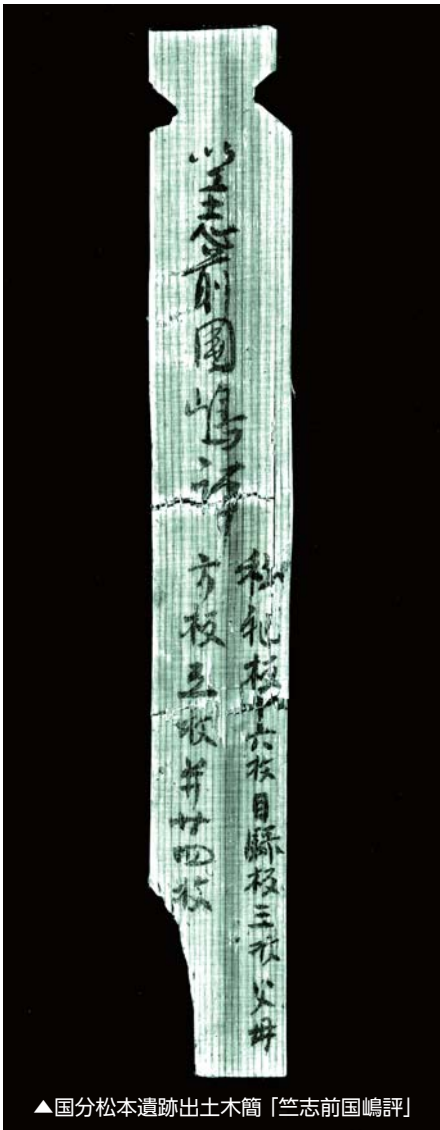 竺志前國嶋評
私祀板十六枚目録板三枚父母
方板五枚并廿四枚
▲国分松本遺跡出土木簡「竺志前国嶋評」